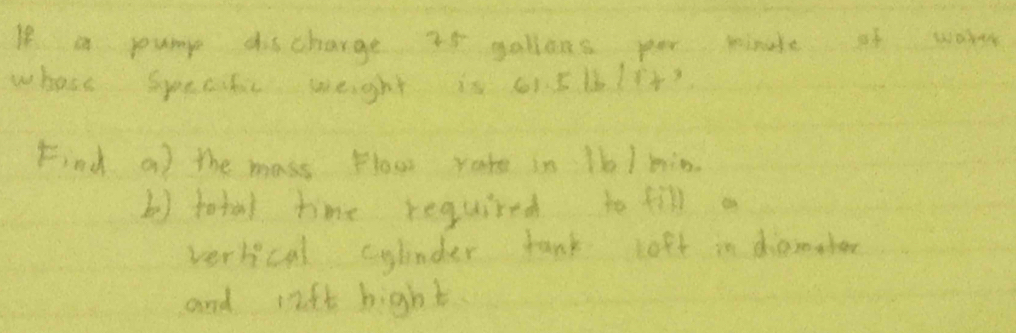 If a pump discharge 75 gallons per minute of water
whose Specific weight is 61.5 lb/ft³.
Find a) the mass Flow rate in lb/min.
b) total time required to fill a
vertical cylinder tank 10ft in diameter
and 12ft hight